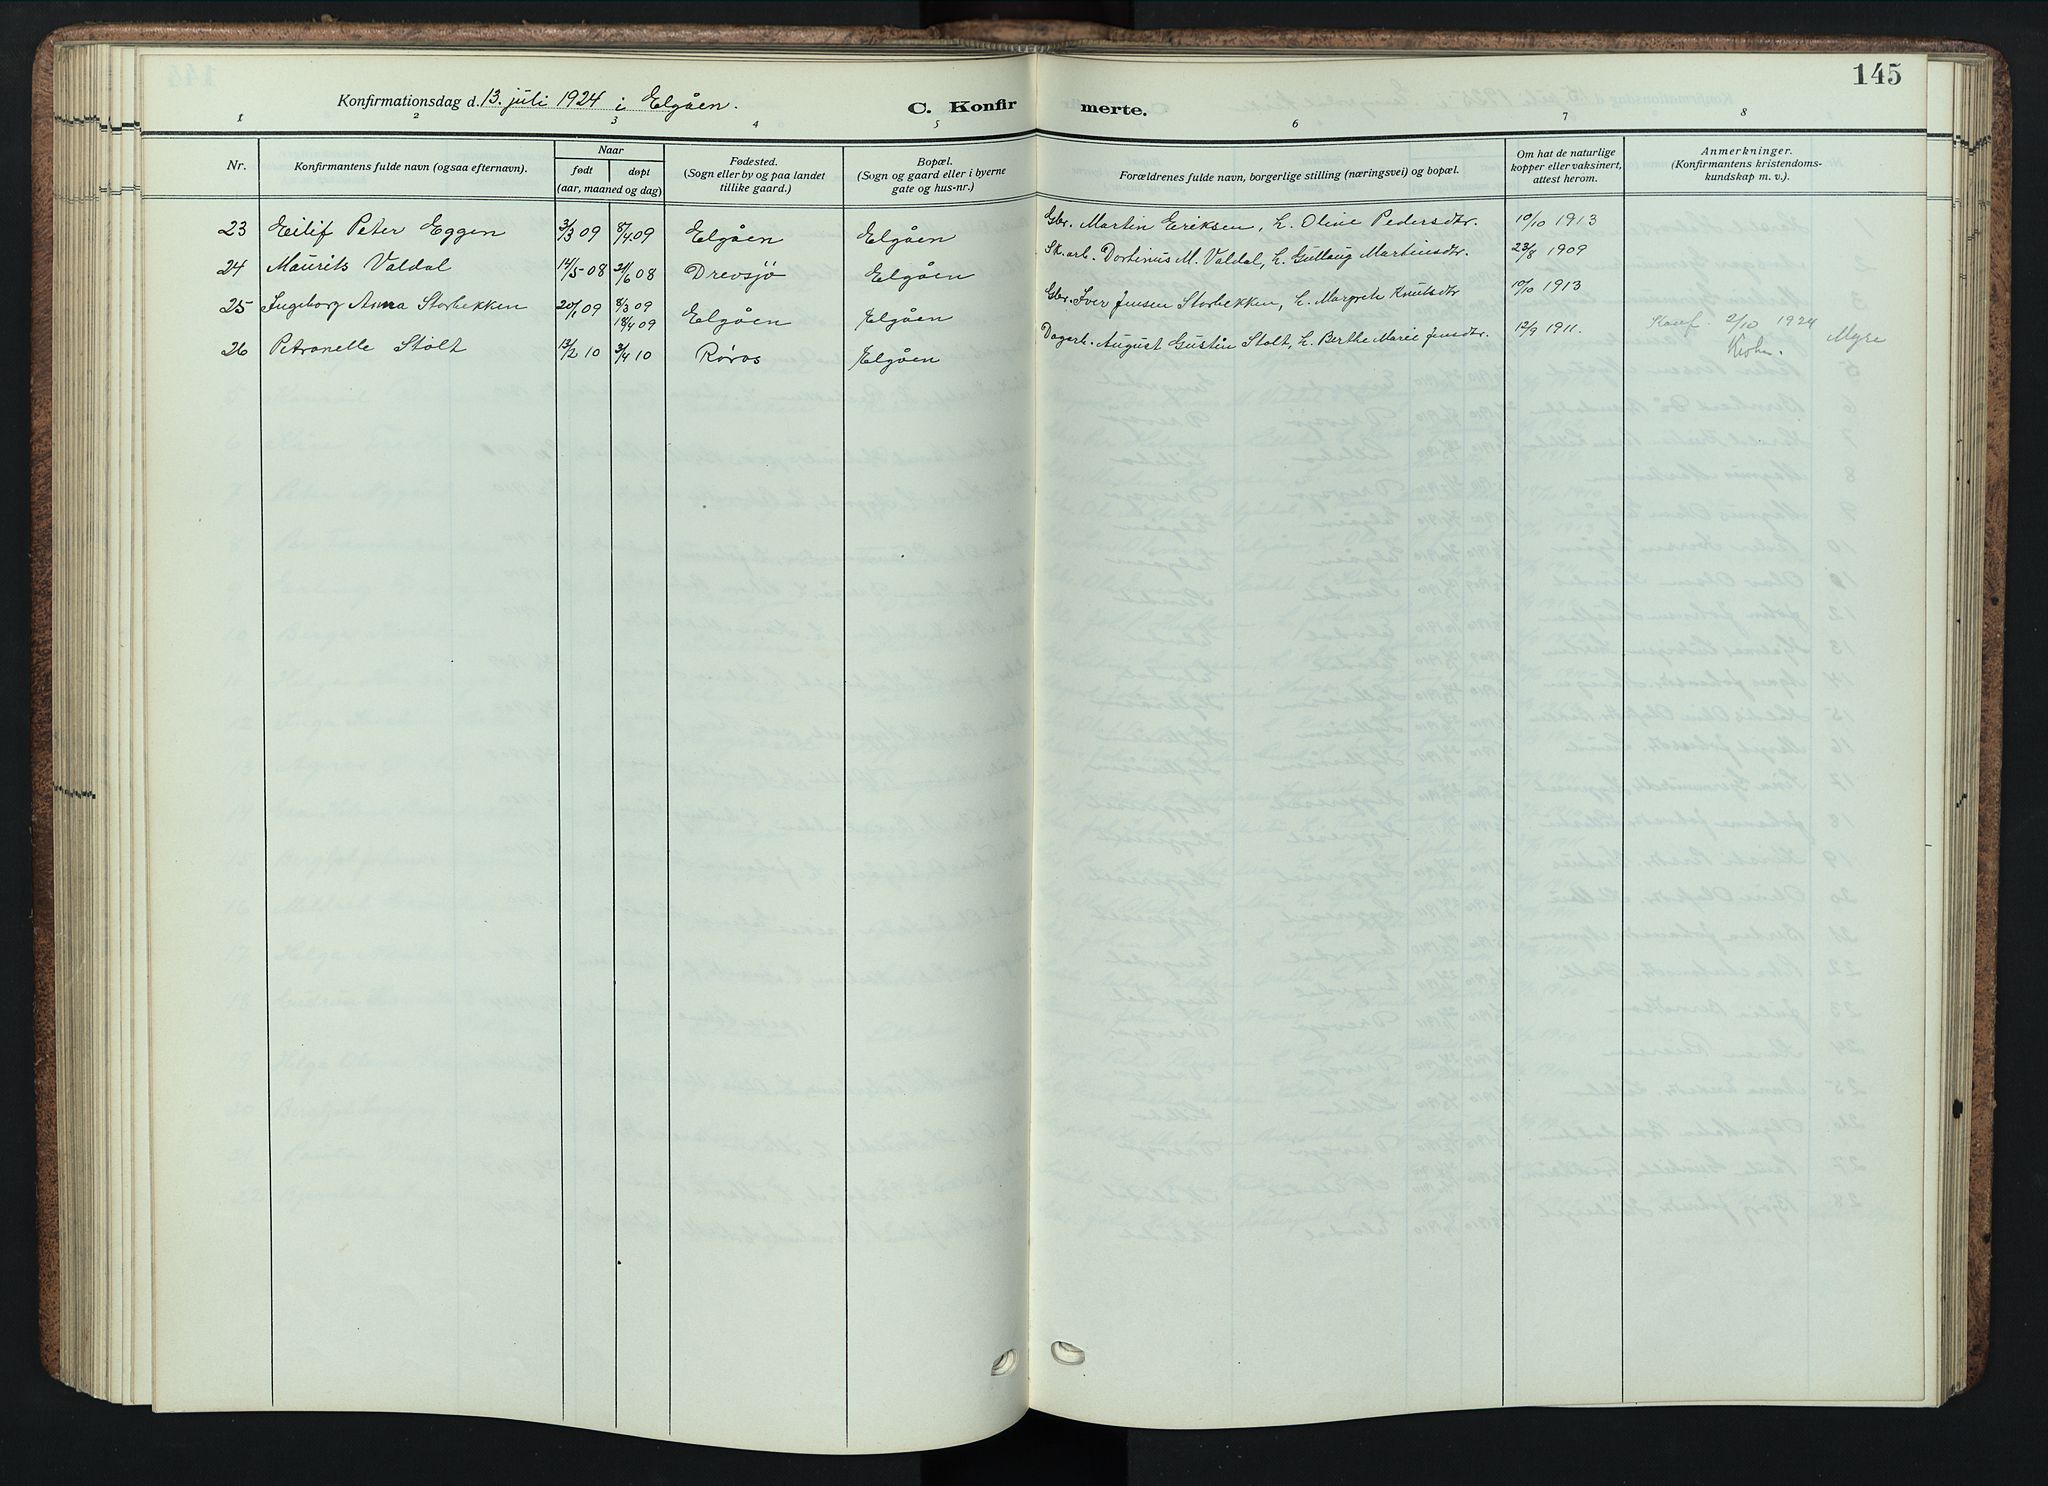 145
Konfirmationsdag d. 13. juli 1924 i Elgåen.
C. Konfirmerte.
1 2 3 4 5 6 7 8
Nr.
Konfirmantens fulde navn (ogsaa efternavn).
Naar
født
døpt
(aar, maaned og dag)
Fødested.
(Sogn eller by og paa landet
tillike gaard.)
Bopæl.
(Sogn og gaard eller i byerne
gate og hus-nr.)
Forældrenes fulde navn, borgerlige stilling (næringsvei) og bopæl.
Om hat de naturlige
kopper eller vaksinert,
attest herom.
Anmerkninger.
(Konfirmantens kristendoms-
kundskap m. v.).
23 Eilif Peter Eggen 3/3 09 8/4 09 Elgåen Elgåen Gbr. Martin Eriksen, h. Oline Pedersdtr. 10/10 1913
24 Maurits Valdal 14/5 08 21/6 08 Drevsjø Elgåen Sk.arb. Dortinus M. Valdal, h. Gullaug Martinsdtr. 23/8 1909
25 Ingeborg Anna Storbekken 20/1 09 8/3 09 18/4 09 Elgåen Elgåen Gbr. Iver Jensen Storbekken, h. Margrete Knutsdtr 10/10 1913
26 Petronelle Stolt 13/2 10 3/4 10 Røros Elgåen Dagarb. August Gustin Stolt, h. Berthe Marie Jensdtr. 12/9 1911. Konf. 2/10 1924
Myre